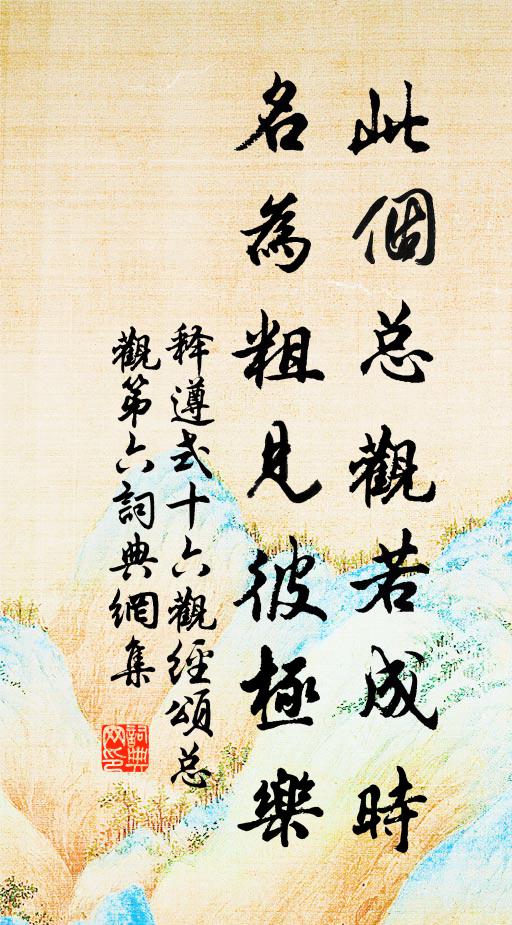 此個总觀若成時
名為粗見彼極樂
释遵式十六觀經頌总
觀第六詞典網集
詞典
网印